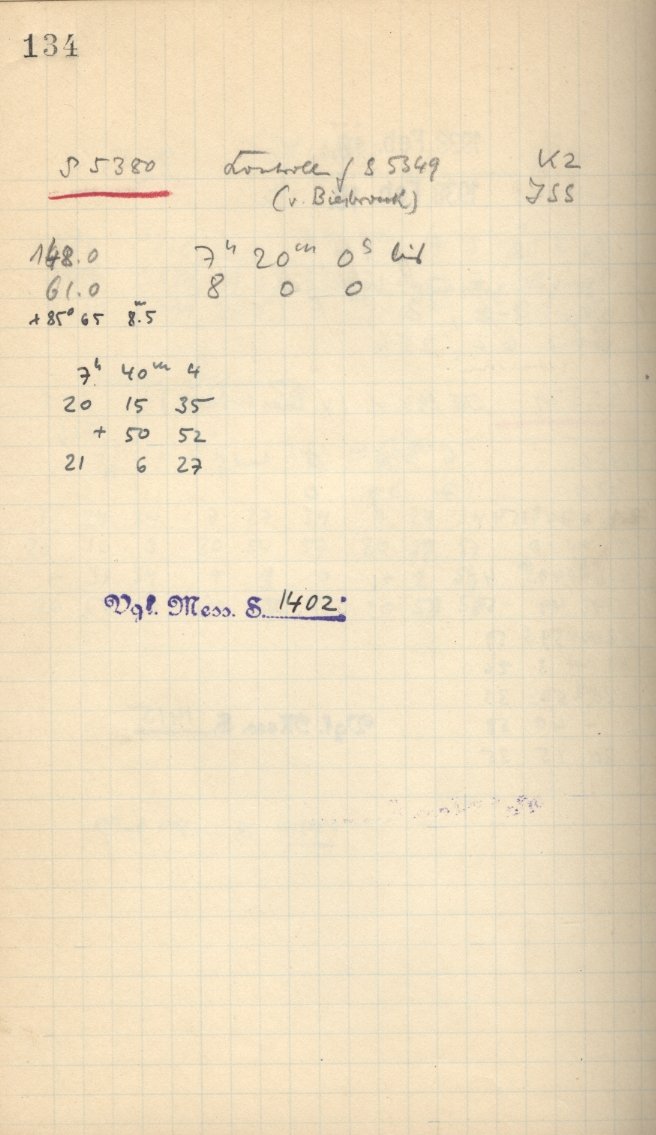 134
S 5380 Kontroll f S 5349 K2
(v. Biesbrouck) JSS
148.0 7h 20m 0s bis
61.0 8 0 0
+85° 65 8.m5
7h 40m 4
20 15 35
+ 50 52
21 6 27
Vgl. Mess. S. 1402